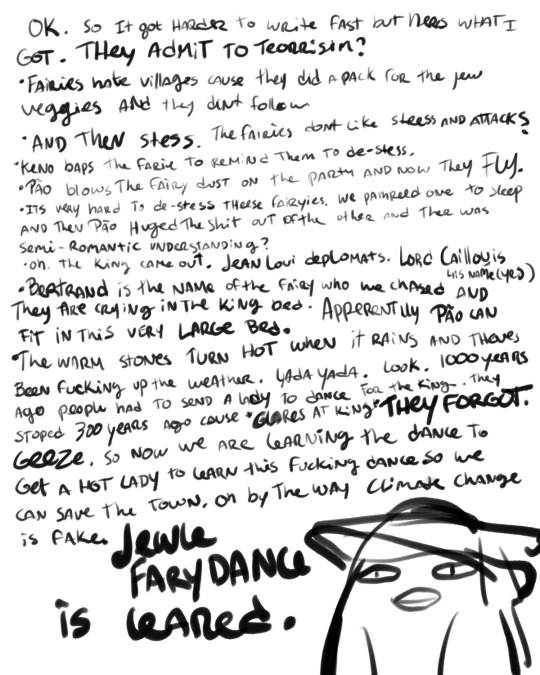 OK. So It got HARDER to write fast but heres WHAT I
GOT. THEY ADMIT TO TEORRISIM?
• FAIRIES hate villages cause they did a pack for the jew
veggies AND they dint follow
• AND THEN stess. The fairies dont like steess AND ATTACKS?
• KENO baps the fARIE to REMIND Them to de-stess.
• PÃO blows The FAIRY dust on the PARTY AND NOW They FLY.
• ITS very hARD To de-stess these faryies. we pampeed one to sleep
AND THEN PÃO HUGED The Shit out of the other AND Ther was
semi-ROMANTIC UNDERSTANDING?
• oh. the King came out. JEAN Loui deplomats. LORD CAILLOU is
his NAME (yes)
• BERTRAND is the NAME of the fAIRY who we chased AND
They ARE CRYING IN THE KING bed. APPERENTLLY PÃO CAN
FIT IN This VERY LARGE BED.
• The WARM STONES TURN HOT when it RAINS AND Theves
BEEN Fucking up the weather. YADA YADA. LOOK. 1000 years
AGO people had to SEND A lADY to DANCE for the KING. They
stoped 300 years AGO cause *GLARES AT KING* THEY FORGOT.
GEEZE. SO NOW we ARE LEARNING the DANCE TO
Get A HOT LADY to LEARN this FUCKING DANCE SO we
CAN SAVE the TOWN. Oh by The WAY CLIMATE CHANGE
is FAKE.
Jewle
FARY DANCE
is LEARED.